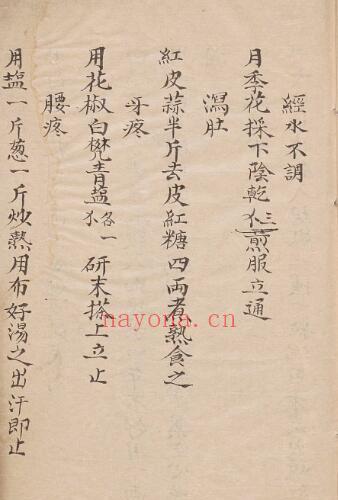 經水不調
月季花採下陰乾 三 煎服立通
瀉肚
紅皮蒜半斤去皮紅糖四兩者熟食之
牙疼
用花椒白礬青盐各一 研末搽上立止
腰疼
用盐一斤葱一斤炒熱用布好湯之出汗即止
nayona.cn